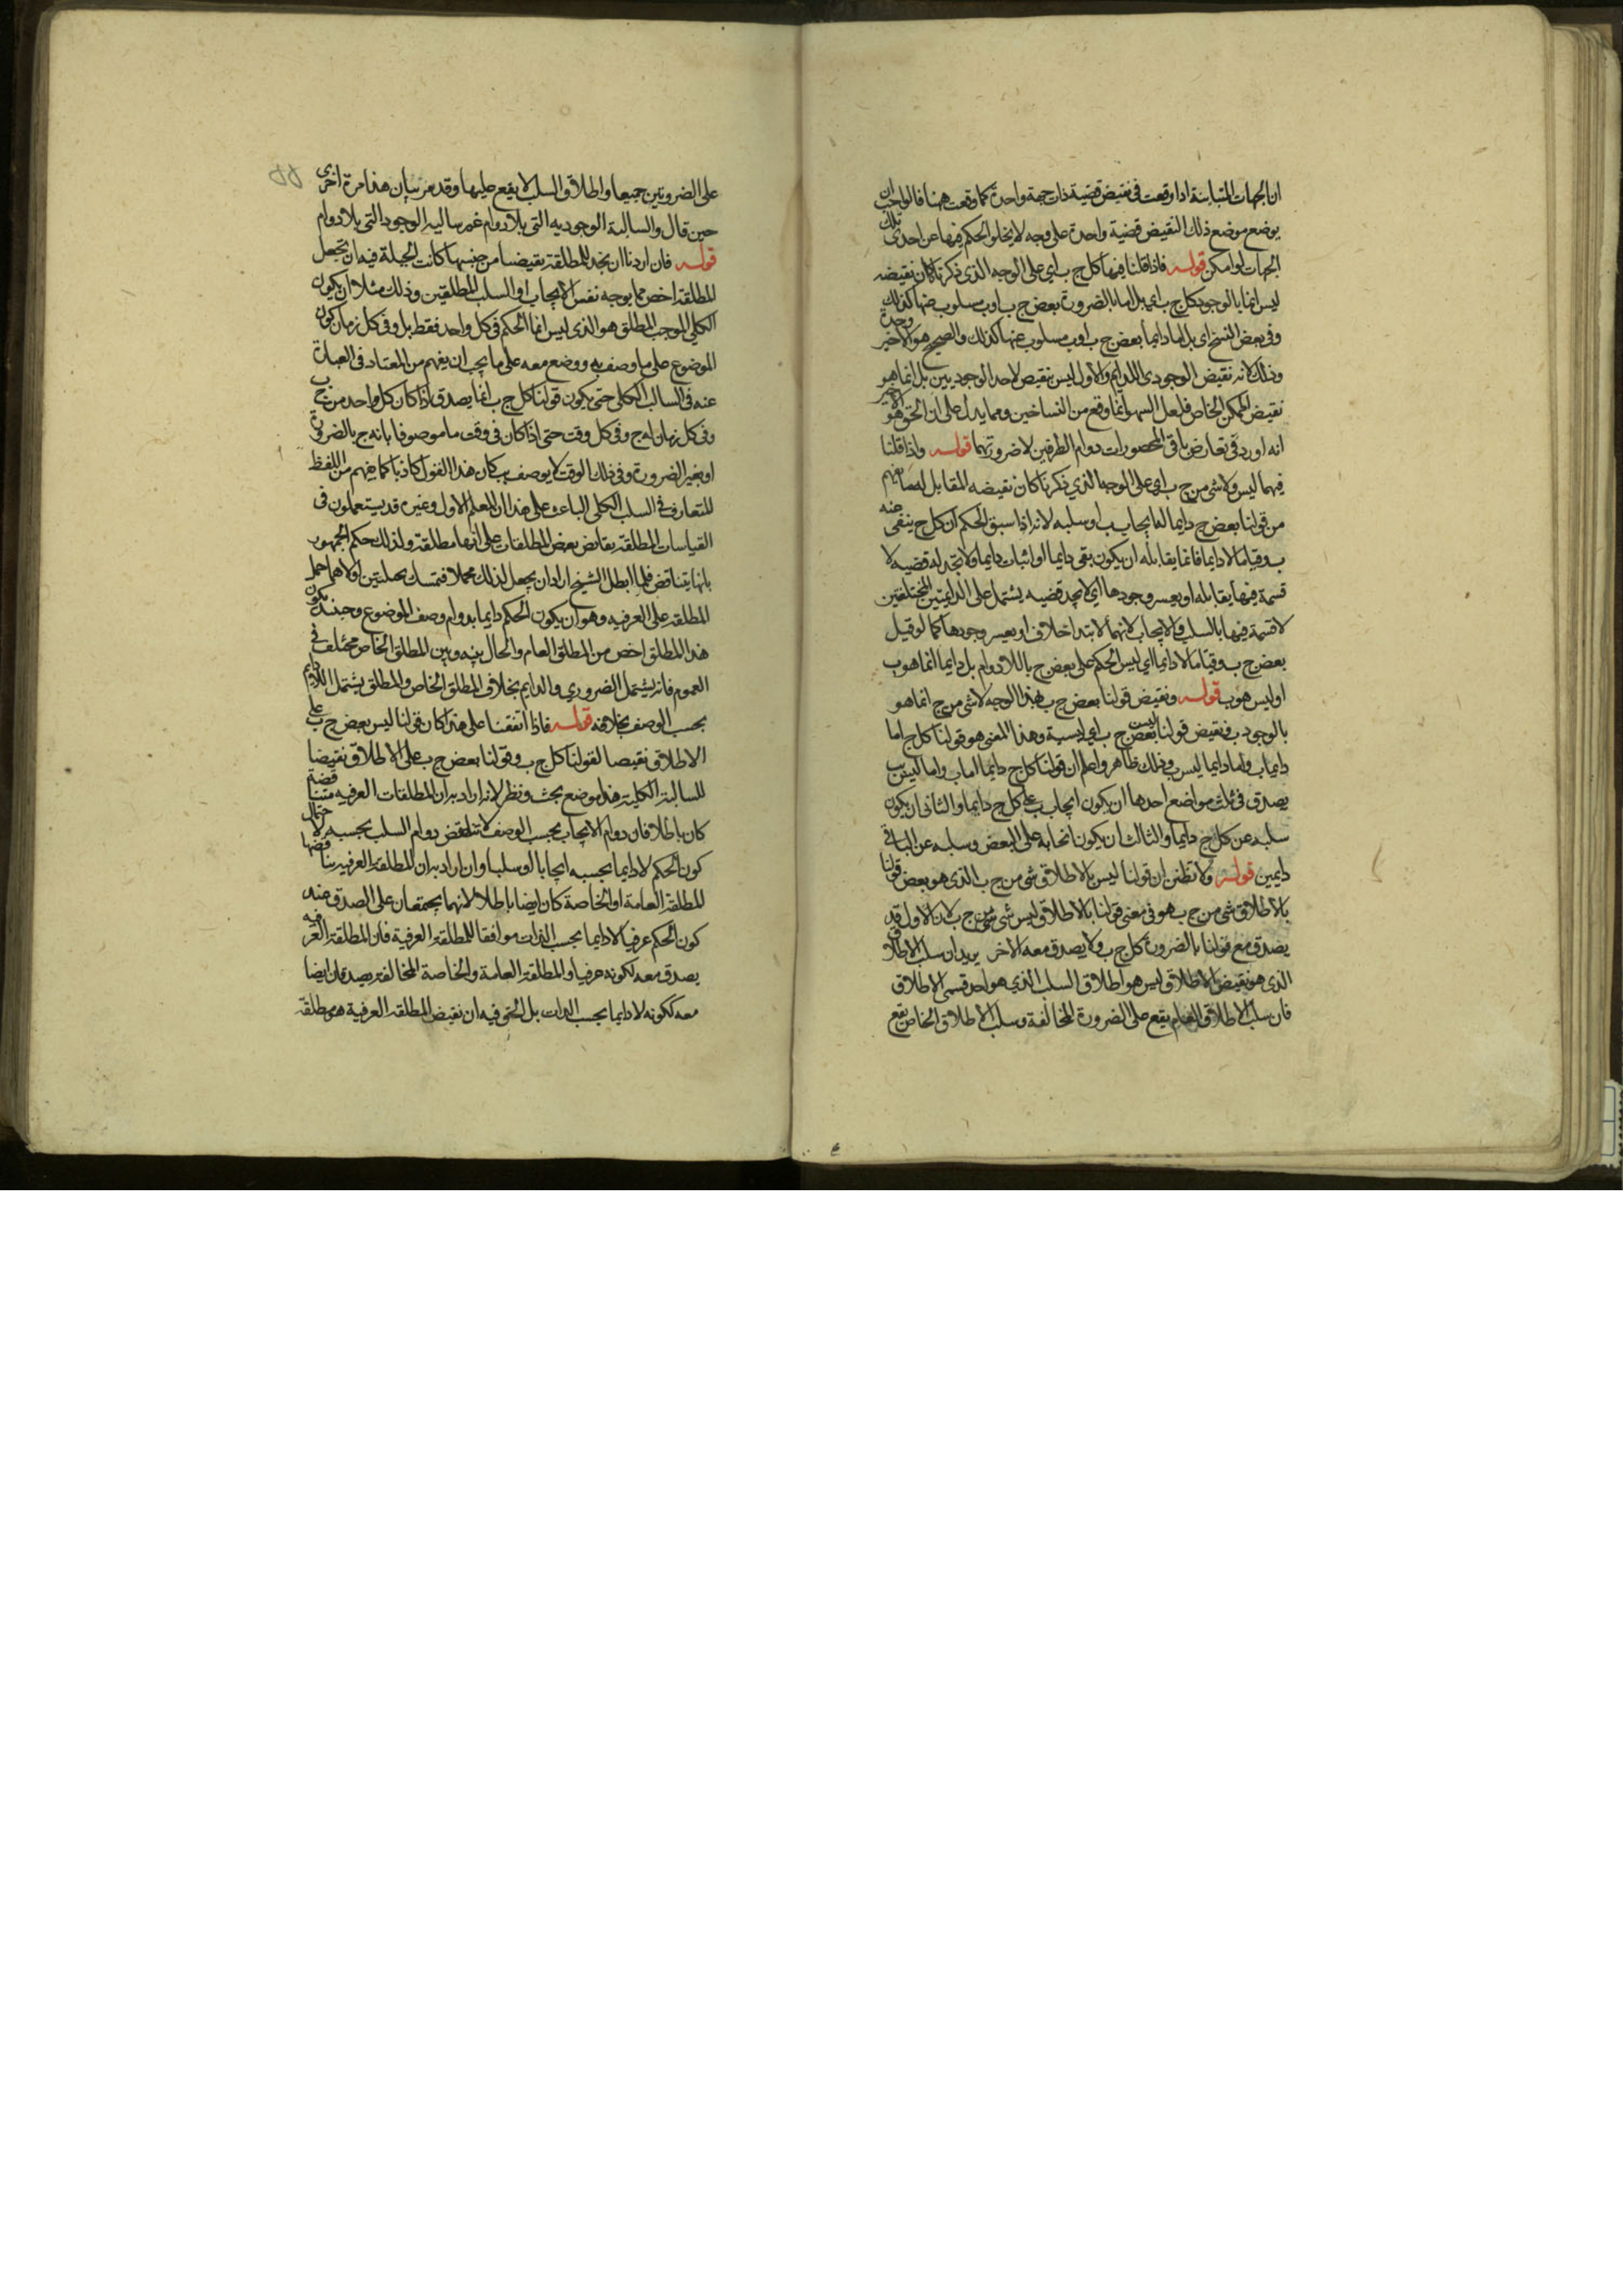 ان الجهات المتباينة اذا وقعت فى نقيض قضية ذات جهة واحدة كما وقعت ههنا فالواجب ان
يوضع موضع ذلك النقيض قضية واحدة على وجه لا يخلو الحكم فيها عن احدى تلك
الجهات لو امكن قوله فاذا قلنا فيها كل ج ب اى على الوجه الذى ذكرنا كان نقيضه
ليس انما بالوجود كل ج ب اى بل اما بالضرورة بعض ج ب او ب مسلوب عنها كذلك
وفى بعض النسخ اى بل اما دايما بعض ج ب او ب مسلوب عنها كذلك والصحيح هو الاخير وحده
وذلك لانه نقيض الوجودى اللادايم والاول ليس نقيض لاحد الوجوديين بل انما هو
نقيض الممكن الخاص فلعل السهو انما وقع من النساخين ومما يدل على ان الحق هو الاخير
انه اورد فى نقايض باقى المحصورات دوام الطرفين لا ضرورتهما قوله واذا قلنا
فيهما ليس ولا شى من ج ب اى على الوجه الذي ذكرنا كان نقيضه المقابل له ما يفهم
من قولنا بعض ج دايما له ايجاب ب او سلبه لانه اذا سبق الحكم ان كل ج ينفى عنه
ب وقتا ما لا دايما فانما يقابله ان يكون نفى دايما او اثبات دايما ولا تجد له قضيه لا
قسمة فيها يقابله او يعسر وجودها اى لا يجد قضيه يشتمل على الدايمتين المختلفتين
لا قسمة فيها بالسلب والايجاب لانهما لابتداخلاف او يعسر وجودها كما لو قيل
بعض ج ب وقتا ما لا دايما اى ليس الحكم على بعض ج باللادوام بل دايما انما هو ب
او ليس هو ب قوله ونقيض قولنا بعض ج ب بهذا الوجه لا شى من ج انما هو
بالوجود ب ونقيض قولنا ليس بعض ج ب اى ليسية وهذا المعنى هو قولنا كل ج اما
دايما ب واما دايما ليس ب وذلك ظاهر واعلم ان قولنا كل ج دايما اما ب واما ليس ب
يصدق فى ثلث مواضع احدها ان يكون ايجاب ب على كل ج دايما والثانى ان يكون
سلبه عن كل ج دايما والثالث ان يكون ايجابه على البعض وسلبه عن الباقى
دايمين قوله ولا تظنن ان قولنا ليس بالاطلاق شى من ج ب الذى هو بعض قولنا
بالاطلاق شى من ج ب هو فى معنى قولنا بالاطلاق ليس شى من ج ب لان الاول قد
يصدق مع قولنا بالضرورة كل ج ب ولا يصدق معه الاخر يريد ان سلب الاطلاق
الذى هو نقيض الاطلاق ليس هو اطلاق السلب الذي هو احد قسمى الاطلاق
فان سلب الاطلاق العام يقع على الضرورة المخالفة وسلب الاطلاق الخاص يقع
على الضروريتين جميعا واطلاق السلب لا يقع عليها وقد مر بيان هذا مرة اخرى
حين قال والسالبة الوجوديه التى بلا دوام غير سالبه الوجود التى بلا دوام
قوله فان اردنا ان نجد للمطلقة نقيضا من جنسها كانت الحيلة فيه ان نجعل
المطلقة اخص مما يوجبه نفس الايجاب او السلب المطلقين وذلك مثلا ان يكون
الكلى الموجب المطلق هو الذى ليس انما الحكم فى كل واحد فقط بل وفى كل زمان كون
الموضوع على ما وصف به ووضع معه على ما يجب ان يفهم من المعتاد فى العبارة
عنه فى السالب الكلى حتى يكون قولنا كل ج ب انما يصدق اذا كان كل واحد من ج ب
وفى كل زمان له ج وفى كل وقت حتى اذا كان فى وقت ما موصوفا بانه ج بالضرورة
او بغير الضرورة وفى ذلك الوقت لا يوصف ب كان هذا القول كاذبا كما يفهم من اللفظ
المتعارف فى السلب الكلى الباعث على هذا ان المعلم الاول وغيره قد يستعملون فى
القياسات المطلقة نقايض بعض المطلقات على انها مطلقة ولذلك حكم الجمهور
بانها يتناقض فلما ابطل الشيخ اراد ان يجعل لذلك محملا فتمسك بحيلتين اولاهما حمل
المطلقة على العرفيه وهو ان يكون الحكم دايما بدوام وصف الموضوع وحينئذ يكون
هذا المطلق اخص من المطلق العام والحال بينه وبين المطلق الخاص مختلف فى
العموم فانه يشتمل الضروري والدايم بخلاف المطلق الخاص والمطلق يشتمل اللادايم
بحسب الوصف بخلافه قوله فاذا اتفقنا على هذا كان قولنا ليس بعض ج ب على
الاطلاق نقيضا لقولنا كل ج ب وقولنا بعض ج ب على الاطلاق نقيضا
للسالبة الكلية هذا موضع بحث ونظر لانه ان اراد به ان المطلقات العرفيه متناقضة
كان باطلا فان دوام الايجاب بحسب الوصف لا تناقض دوام السلب بحسبه لاحتمال
كون الحكم لا دايما بحسبه ايجابا او سلبا وان اراد به ان المطلقة العرفيه يناقضها
المطلقة العامة او الخاصة كان ايضا باطلا لانهما يجتمعان على الصدق عند
كون الحكم عرفيا لا دايما بحسب الذات موافقا للمطلقة العرفية فان المطلقة العرفيه
يصدق معه لكونه عرفيا والمطلقة العامة والخاصة المخالفة يصدقان ايضا
معه لكونه لا دايما بحسب الذات بل الحق فيه ان نقيض المطلقة العرفية هى مطلقة